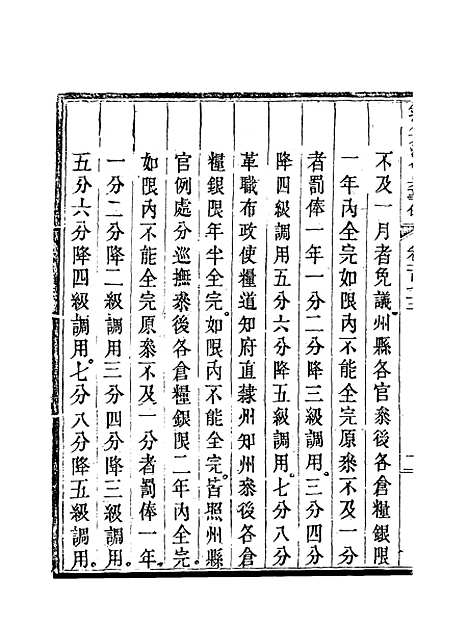 不及一月者免議州縣各官叅後各倉糧銀限
一年內全完如限內不能全完原叅不及一分
者罰俸一年一分二分降三級調用。三分四分
降四級調用五分六分降五級調用。七分八分
革職布政使糧道知府直隸州知州叅後各倉
糧銀限年半全完。如限內不能全完。皆照州縣
官例處分巡撫叅後各倉糧銀限二年內全完
如限內不能全完原叅不及一分者罰俸一年。
一分二分降二級調用三分四分降三級調用。
五分六分降四級調用。七分八分降五級調用。